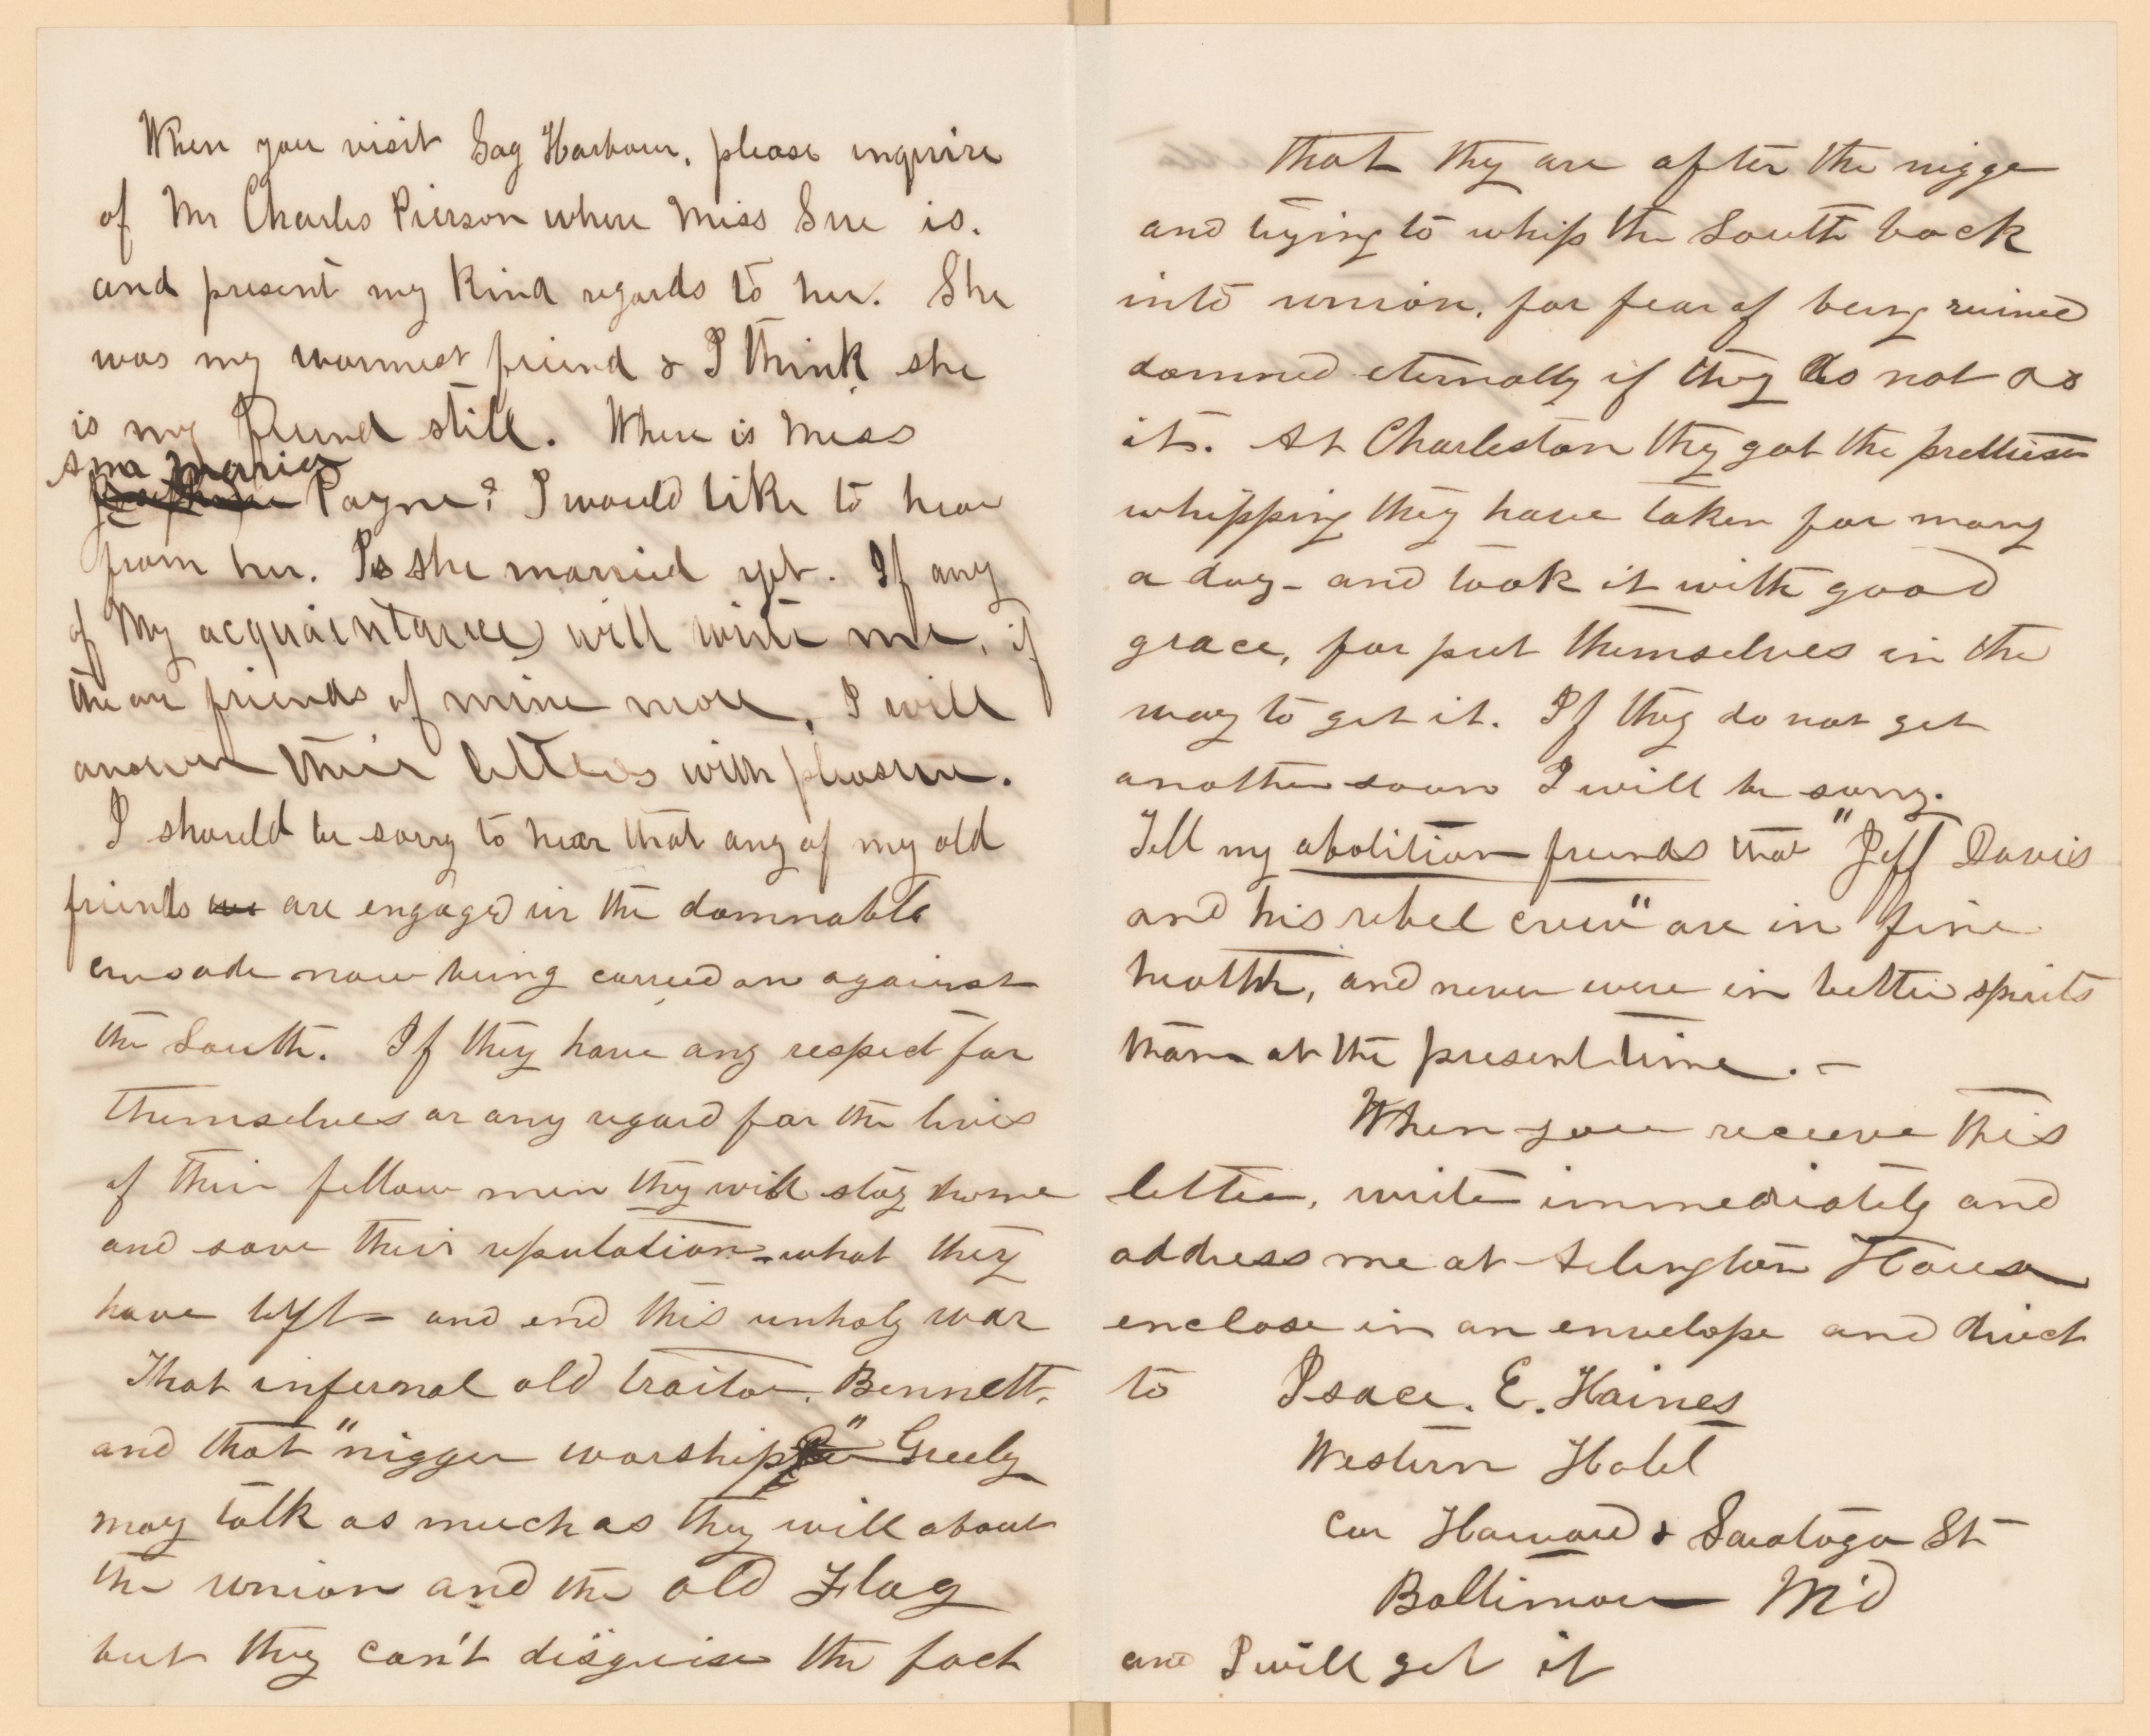 When you visit Sag Harbour, please inquire
of Mr Charles Pierson where Miss Sue is.
and present my kind regards to her. She
was my warmest friend & I think she
is my friend still. Where is Miss
Ana Maria
Payne? I would like to hear
from her. Is she married yet. If any
of My acquaintances will write me, if
the are friends of mine more, I will
answer their letters with pleasure.
I should be sorry to hear that any of my old
friends are engaged in the damnable
crusade now being carried on against
the South. If they have any respect for
themselves or any regard for the lives
of their fellow men they will stay home
and save their reputation - what they
have left - and end this unholy war
That infernal old traitor, Bennett,
and that "nigger worshipper" Greely
may talk as much as they will about
the union and the old Flag
but they can't disguise the fact
that they are after the nigge
and trying to whip the South back
into union, for fear of being ruined
damned eternally if they do not do
it. At Charleston they got the prettiest
whipping they have taken for many
a day - and took it with good
grace, for put themselves in the
way to get it. If they do not get
another soon I will be sorry.
Tell my abolition friends that "Jeff Davis
and his rebel crew" are in fine
health, and never were in better spirits
than at the present time. -
When you receive this
letter, write immediately and
address me at Arlington House
enclose in an envelope and direct
to Isace. E. Haines
Western Hotel
Cor Howard & Saratoga St
Baltimore M'd
and I will get it